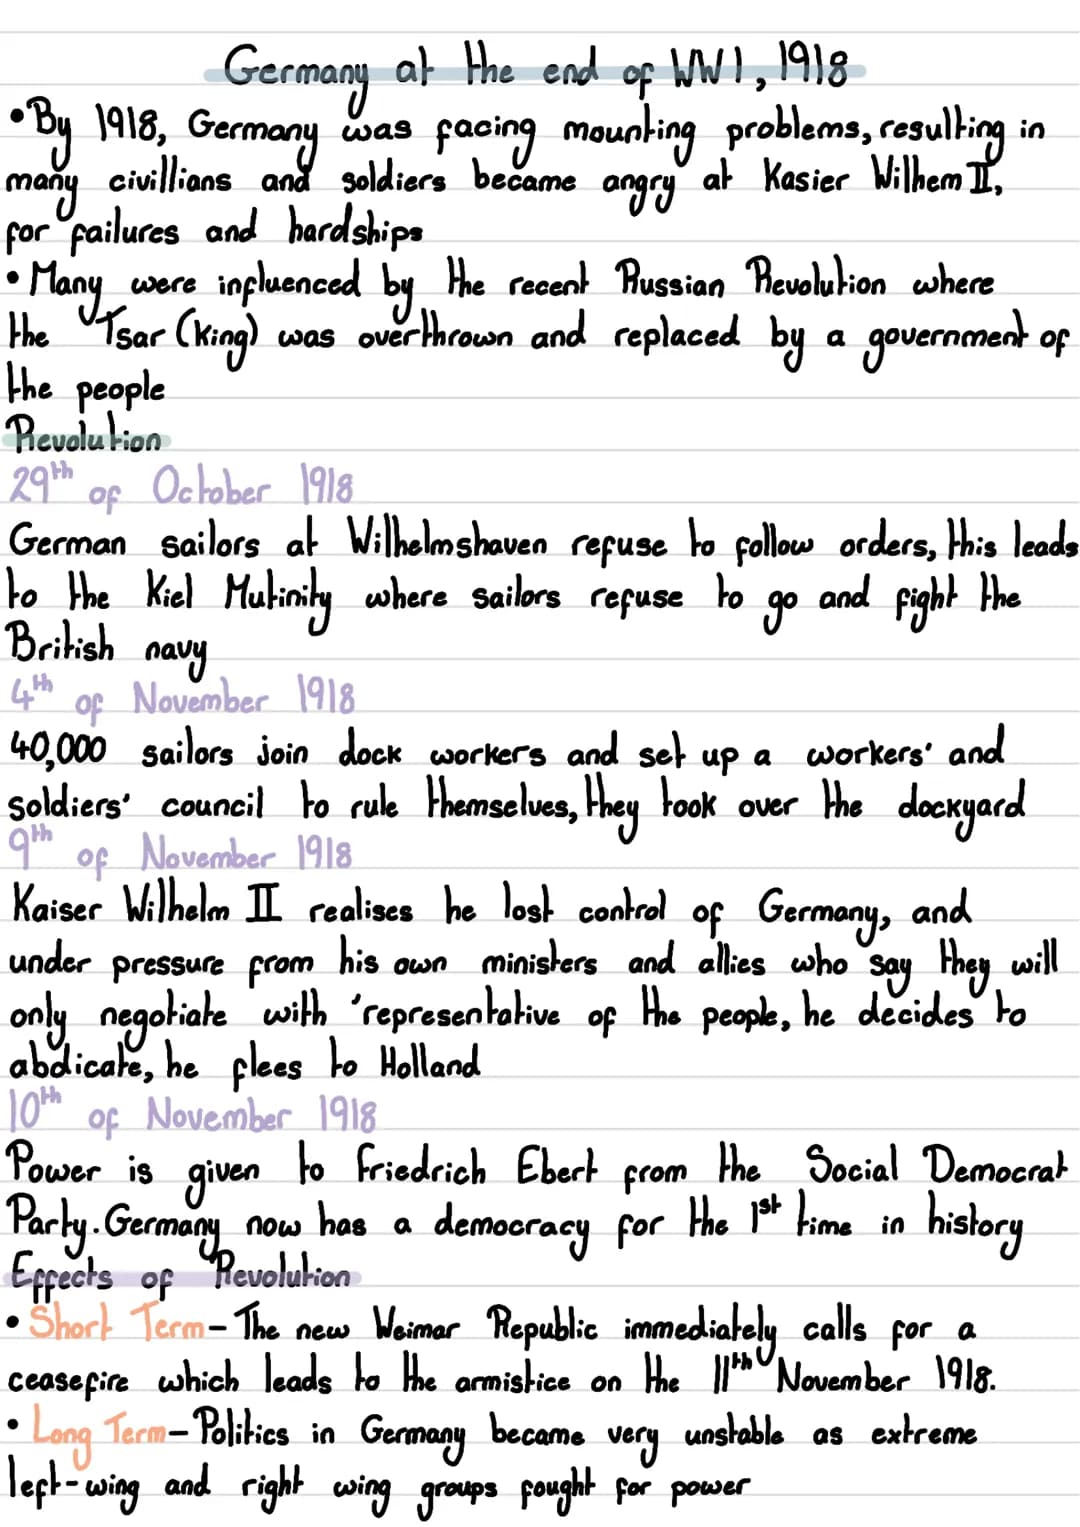 Germany at the end of WW1, 1918
•By 1918, Germany was facing mounting problems, resulting in
many civillians and soldiers became angry at Kasier Wilhem II,
for failures and hardships
•Many were influenced by the recent Russian Revolution where
the Tsar (King) was overthrown and replaced by a government of
the people
Revolution
29th of October 1918
German sailors at Wilhelmshaven refuse to follow orders, this leads
to the Kiel Mutinity where sailors refuse to go and fight the
British navy
4th of November 1918
40,000 sailors join dock workers and set up a workers' and
soldiers' council to rule themselves, they took over the dockyard
9th of November 1918
Kaiser Wilhelm II realises he lost control of Germany, and
under pressure from his own ministers and allies who say they will
only negotiate with 'representative of the people, he decides to
abdicate, he flees to Holland
10th of November 1918
Power is given to Friedrich Ebert from the Social Democrat
Party. Germany now has a democracy for the 1st time in history
Effects of Revolution
•Short Term- The new Weimar Republic immediately calls for a
ceasefire which leads to the armistice on the 11th November 1918.
•Long Term- Politics in Germany became very unstable as extreme
left-wing and right wing groups fought for power